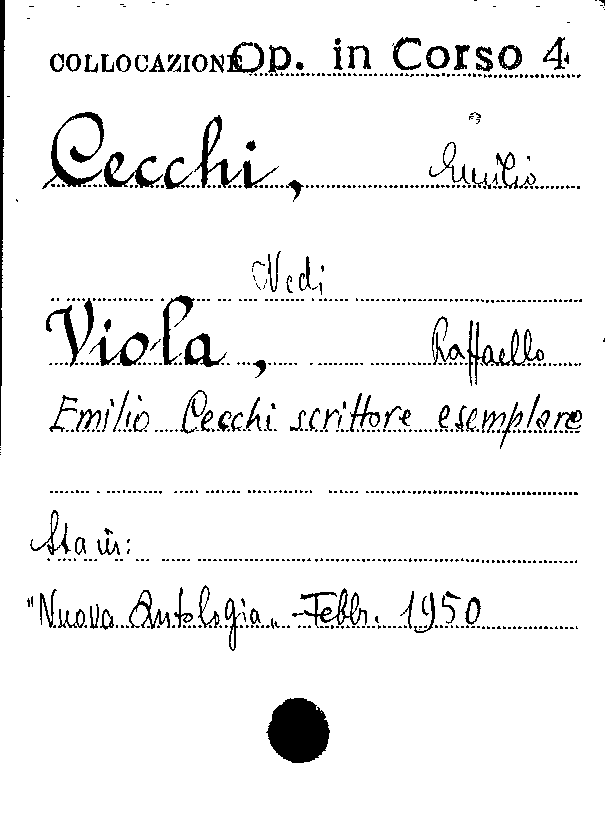 COLLOCAZIONE Op. in Corso 4
Cecchi, Emilio
Vedi
Viola, Raffaello
Emilio Cecchi scrittore esemplare
Sta in:
"Nuova Antologia" - Febbr. 1950